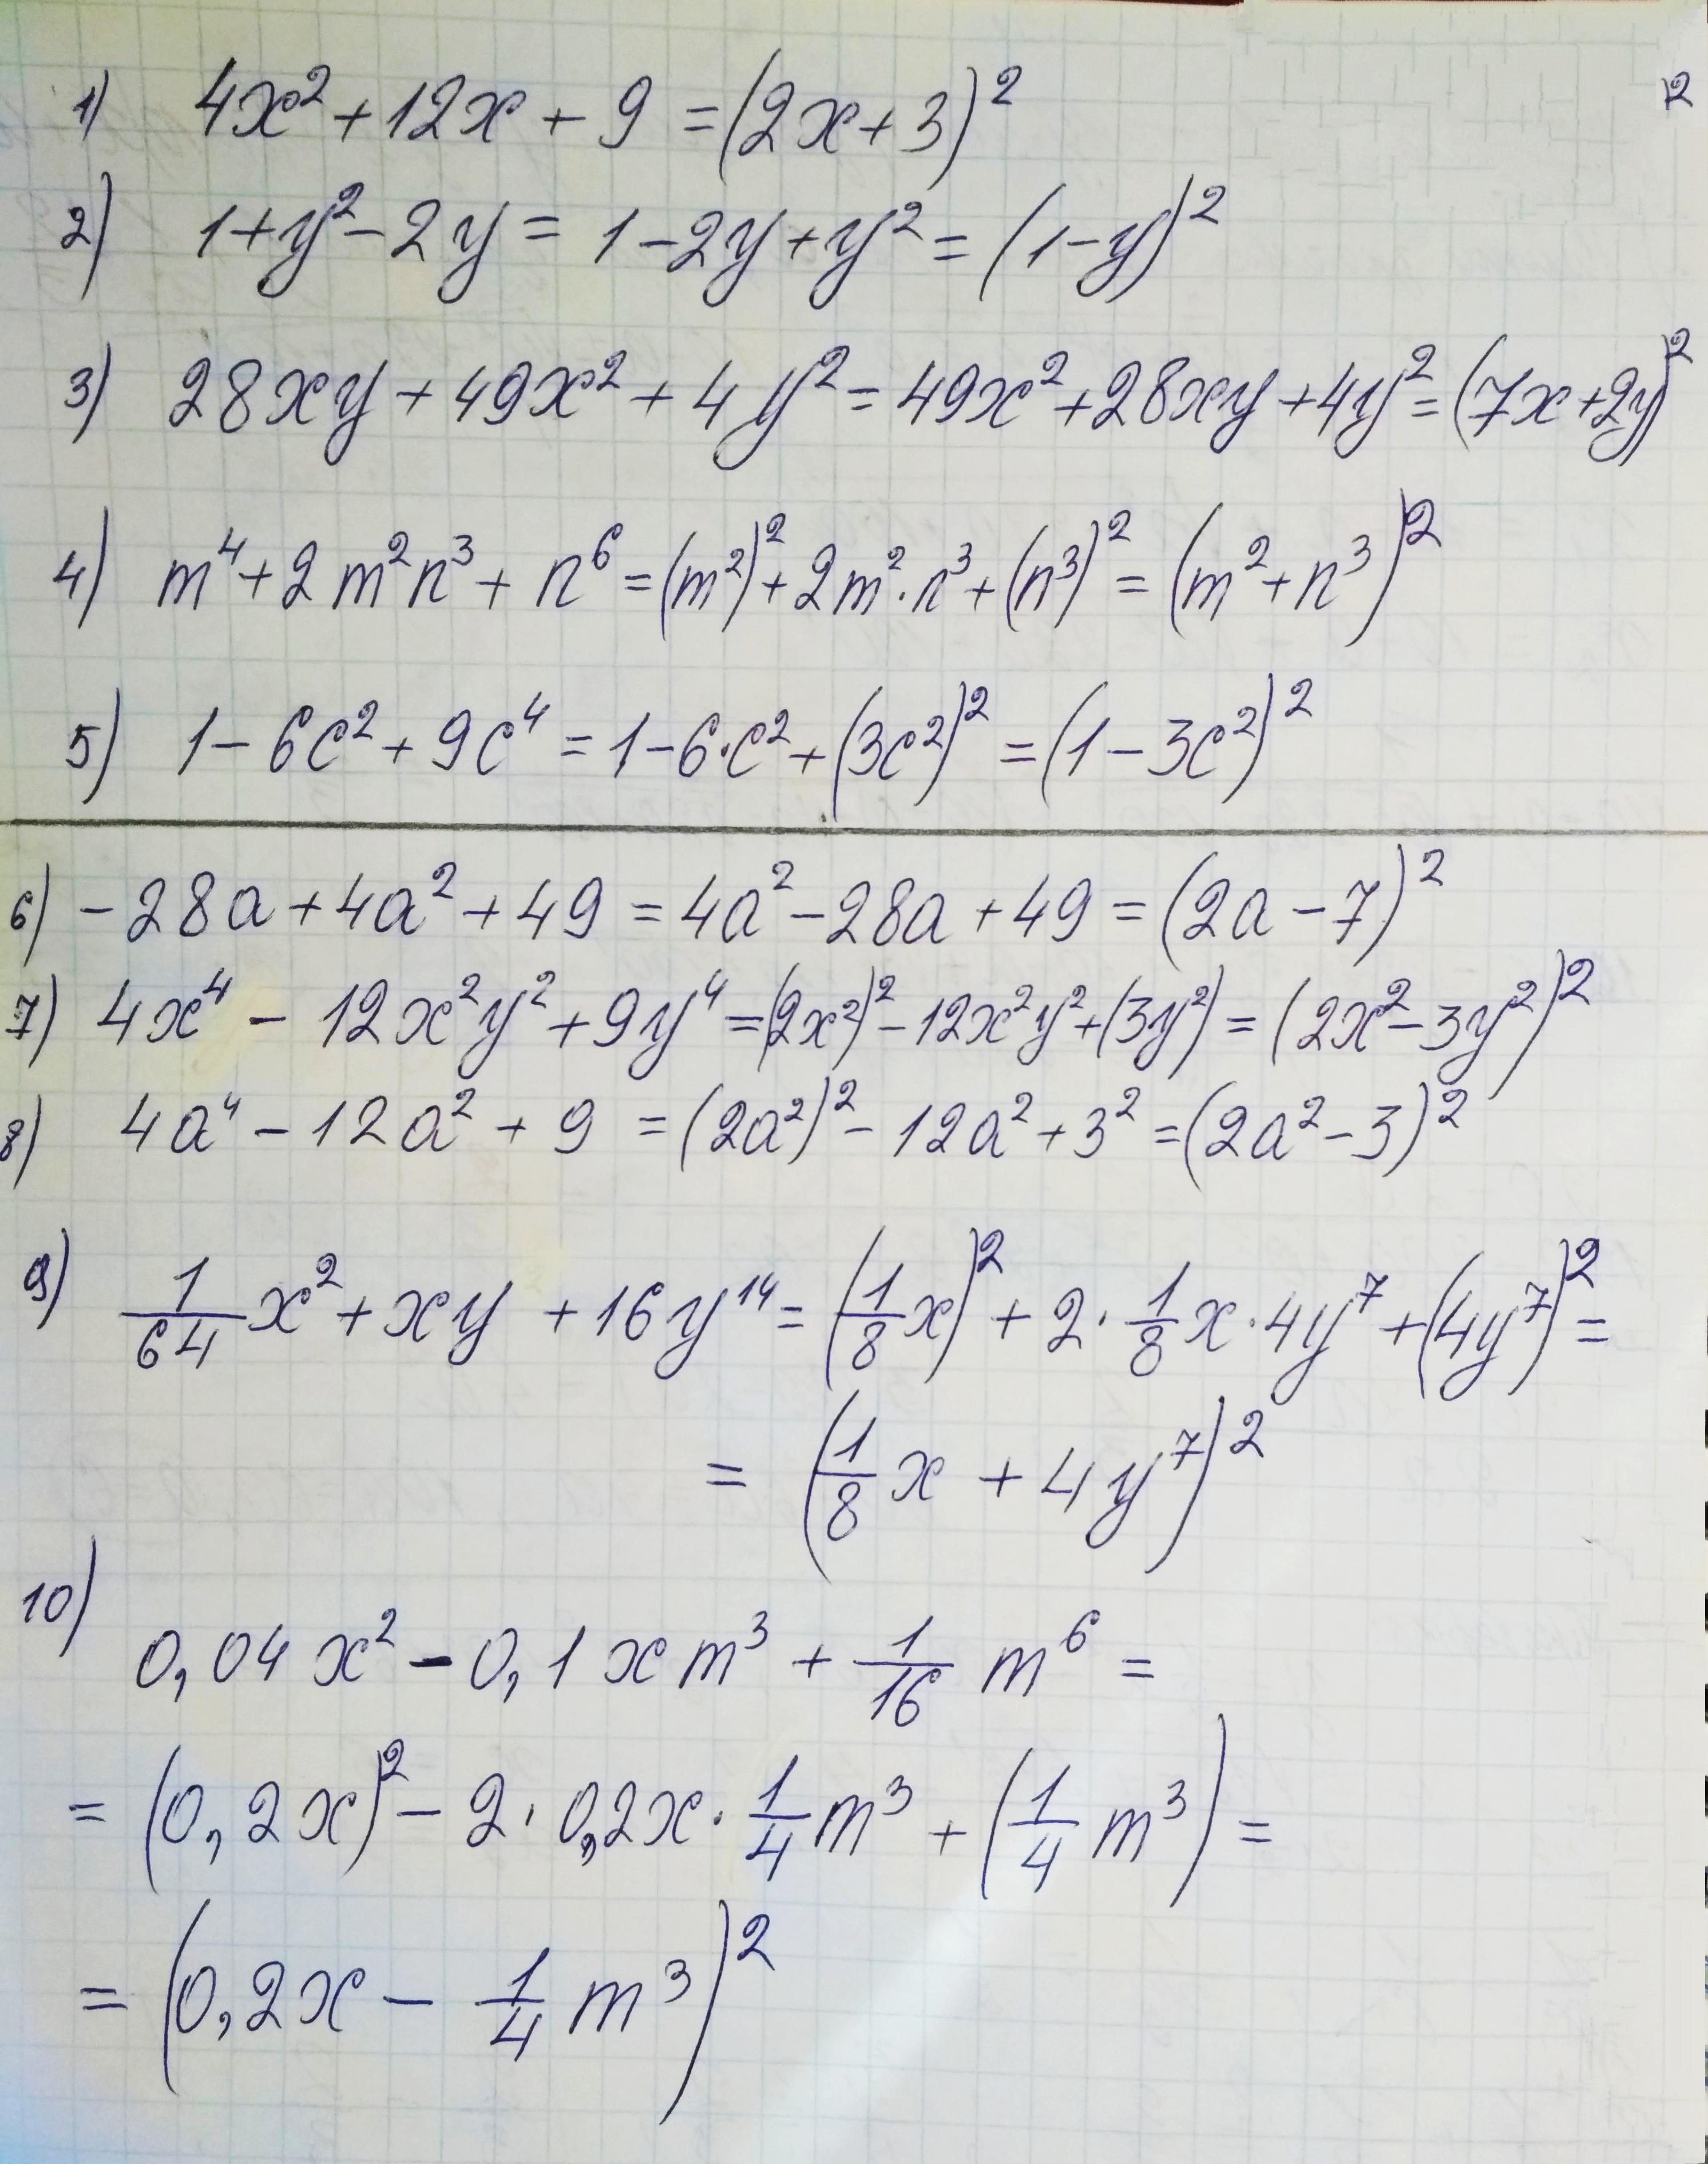 12
1) 4x² + 12x + 9 = (2x + 3)²
2) 1 + y² - 2y = 1 - 2y + y² = (1 - y)²
3) 28xy + 49x² + 4y² = 49x² + 28xy + 4y² = (7x + 2y)²
4) m⁴ + 2m²n³ + n⁶ = (m²)² + 2m²·n³ + (n³)² = (m² + n³)²
5) 1 - 6c² + 9c⁴ = 1 - 6·c² + (3c²)² = (1 - 3c²)²
6) -28a + 4a² + 49 = 4a² - 28a + 49 = (2a - 7)²
7) 4x⁴ - 12x²y² + 9y⁴ = (2x²)² - 12x²y² + (3y²) = (2x² - 3y²)²
8) 4a⁴ - 12a² + 9 = (2a²)² - 12a² + 3² = (2a² - 3)²
9) 1/64 x² + xy + 16y¹⁴ = (1/8 x)² + 2·1/8 x·4y⁷ + (4y⁷)² =
= (1/8 x + 4y⁷)²
10)
0,04x² - 0,1xm³ + 1/16 m⁶ =
= (0,2x)² - 2·0,2x·1/4 m³ + (1/4 m³) =
= (0,2x - 1/4 m³)²